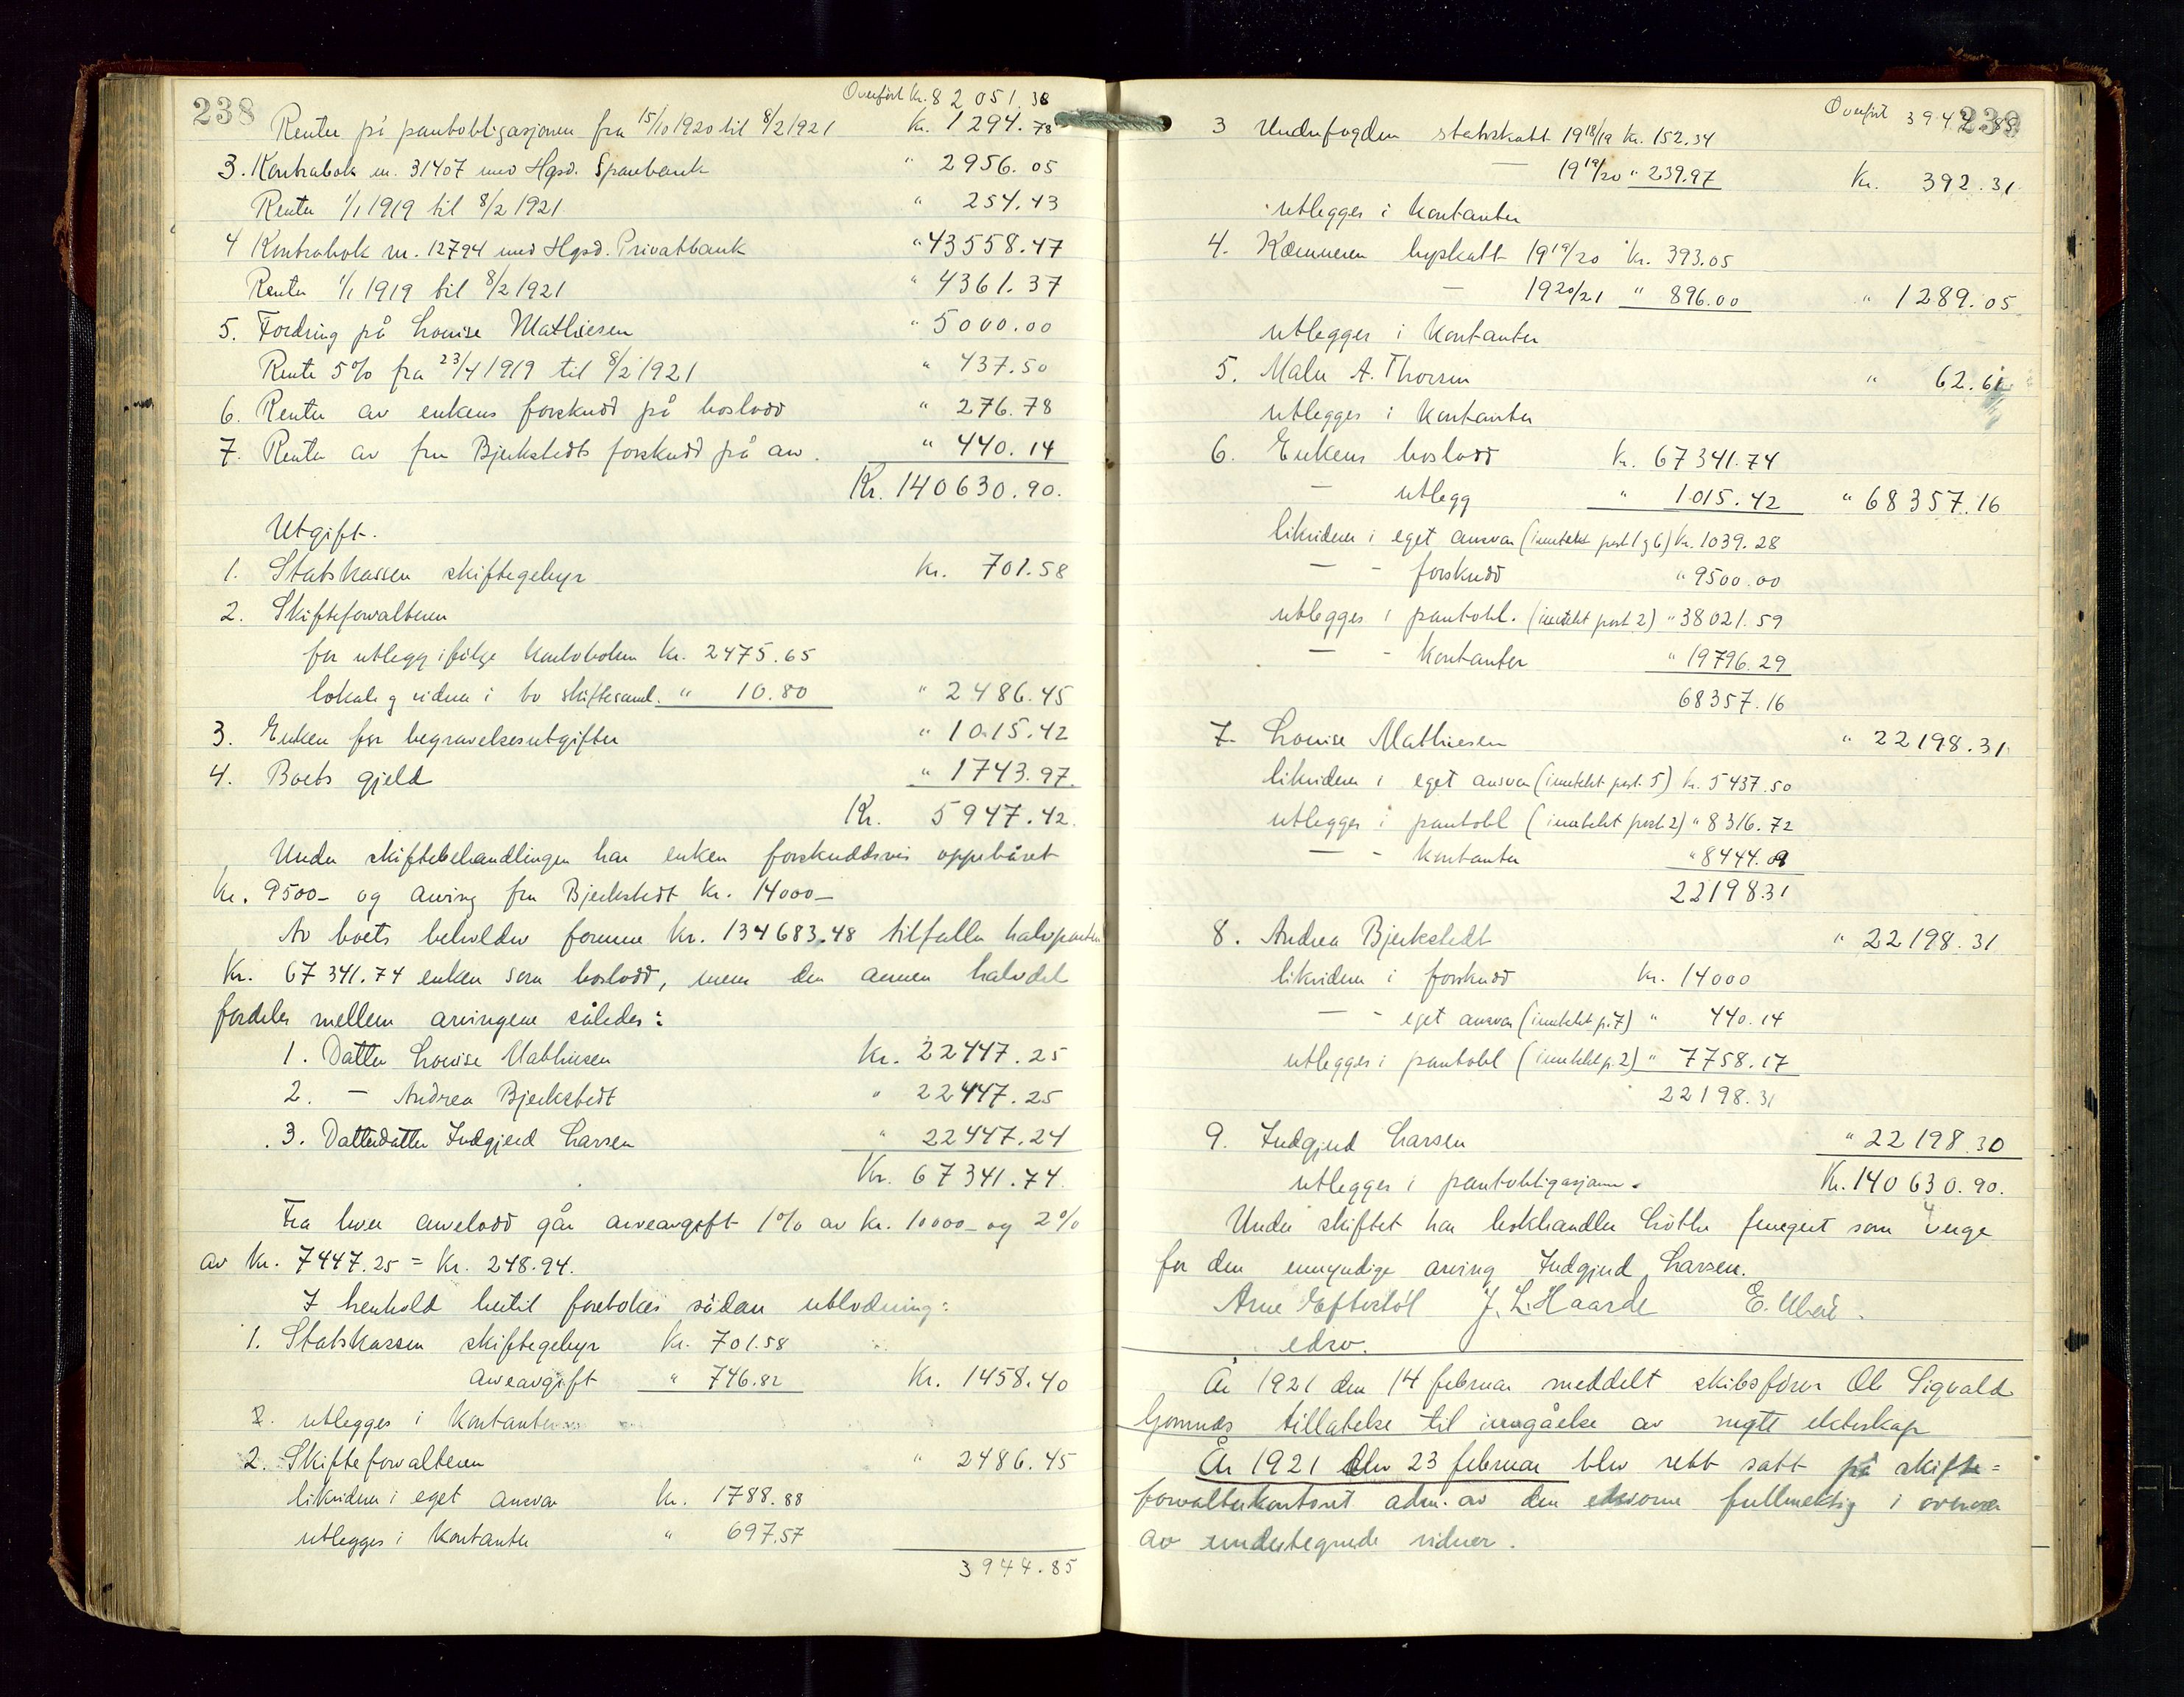 238
Overført kr. 82 051.38
Renter på pantobligasjonen fra 15/10 1920 til 8/2 1921 kr. 1294.78
3. Kontrabok nr. 31407 med Hgsd. Sparebank " 2956.05
Renter 1/1 1919 til 8/2 1921 " 254.43
4 Kontrabok nr. 12794 med Hgsd. Privatbank " 43558.47
Renter 1/1 1919 til 8/2 1921 " 4361.37
5. Fordring på Louise Mathiesen " 5000.00
Rente 5% fra 23/4 1919 til 8/2 1921 " 437.50
6. Renter av enkens forskudd på boslodd " 276.78
7. Renter av fru Bjerkstedts forskudd på arv. " 440.14
Kr. 140630.90.
Utgift.
1. Statskassen skiftegebyr kr. 701.58
2. Skifteforvalteren
for utlegg ifølge kontoboken kr. 2475.65
lokale og vidner i to skiftesaml. " 10.80 " 2486.45
3. Enken for begravelsesutgifter " 1015.42
4. Boets gjeld " 1743.97
Kr. 5947.42.
Under skiftebehandlingen har enken forskuddsvis oppebåret
kr. 9500_ og arving fru Bjerkstedt kr. 14000_
Av boets beholdne formue kr. 134683.48 tilfaller halvparten
kr. 67 341.74 enken som boslodd, mens den annen halvdel
fordeles mellem arvingene således:
1. Datter Louise Mathiesen kr. 22447.25
2. — Andrea Bjerkstedt " 22447.25
3. Datterdatter Indgjerd Larsen " 22447.24
Kr. 67341.74
Fra hver arvelodd går arveavgift 1% av kr. 10000_ og 2%
av kr. 7447.25 = kr. 248.94.
I henhold hertil foretokes sådan utlodning:
1. Statskassen skiftegebyr kr. 701.58
arveavgift " 746.82 kr. 1458.40
2. utlegges i kontanter
2. Skifteforvalteren " 2486.45
likviderer i eget ansvar kr. 1788.88
utlegges i kontanter " 697.57
3944.85
239
Overført 3944.85
3 Underfogden statsskatt 1918/19 kr. 152.34
— 1919/20 " 239.97 kr. 392.31
utlegges i kontanter
4. Kæmneren byskatt 1919/20 kr. 393.05
— 1920/21 " 896.00 " 1289.05
utlegges i kontanter
5. Maler A. Thorsen " 62.61
utlegges i kontanter
6. Enkens boslodd kr. 67341.74
— utlegg " 1015.42 " 68357.16
likviderer i eget ansvar (inntekt post 1 og 6) kr. 1039.28
— - forskudd " 9500.00
utlegges i pantobl. (inntekt post 2) " 38021.59
— - kontanter " 19796.29
68357.16
7. Louise Mathiesen " 22198.31
likviderer i eget ansvar (inntekt post. 5) kr. 5437.50
utlegges i pantobl (inntekt post 2) " 8316.72
— - kontanter " 8444.09
22198.31
8. Andrea Bjerkstedt " 22198.31
likviderer i forskudd kr. 14000
— - eget ansvar (inntekt p. 7) " 440.14
utlegges i pantobl (inntekt p. 2) " 7758.17
22198.31
9. Indgjerd Larsen " 22198.30
utlegges i pantobligasjonen. Kr. 140630.90.
Under skiftet har bokhandler fungert som verge
for den umyndige arving Indgjerd Larsen.
Arne Eftestøl J. L. Haarde E.
edsv.
År 1921 den 14 februar meddelt skibsfører Ole Sigvald
Gomnæs tillatelse til inngåelse av nytt ekteskap
År 1921 den 23 februar blev rett satt på skifte=
forvalterkontoret adm. av den edsvorne fullmektig i overvær
av undertegnede vidner.